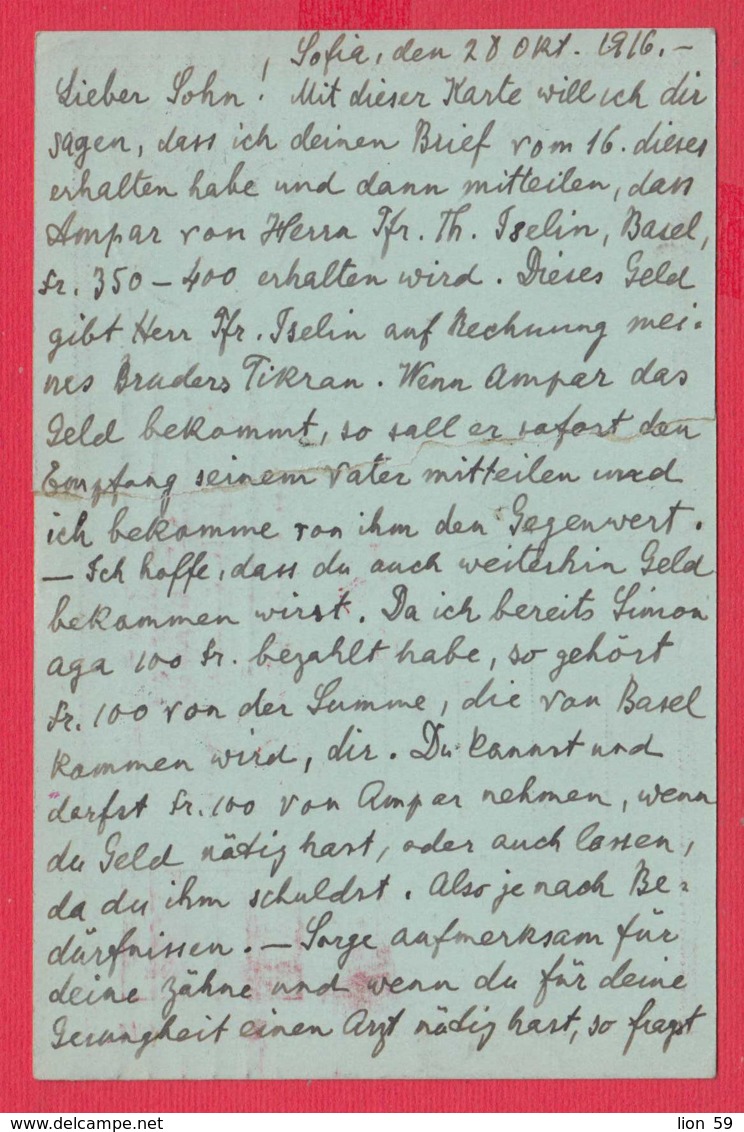 Sofia, den 28 Okt. 1916.-
Lieber Sohn! Mit dieser Karte will ich dir
sagen, dass ich deinen Brief vom 16. dieses
erhalten habe und dann mitteilen, dass
Ampar von Herrn Pfr. Th. Iselin, Basel,
Fr. 350 – 400 erhalten wird. Dieses Geld
gibt Herr Pfr. Iselin auf Rechnung mei-
nes Bruders Tikran. Wenn Ampar das
Geld bekommt, so soll er sofort den
Empfang seinem Vater mitteilen und
ich bekomme von ihm den Gegenwert.
— Ich hoffe, dass du auch weiterhin Geld
bekommen wirst. Da ich bereits Simon
aga 100 Fr. bezahlt habe, so gehört
Fr. 100 von der Summe, die von Basel
kommen wird, dir. Du kannst und
darfst Fr. 100 von Ampar nehmen, wenn
du Geld nötig hast, oder auch lassen,
da du ihm schuldst. Also je nach Be-
dürfnissen. — Sorge aufmerksam für
deine Zähne und wenn du für deine
Gesungheit einen Arzt nötig hast, so fragst
lion 59